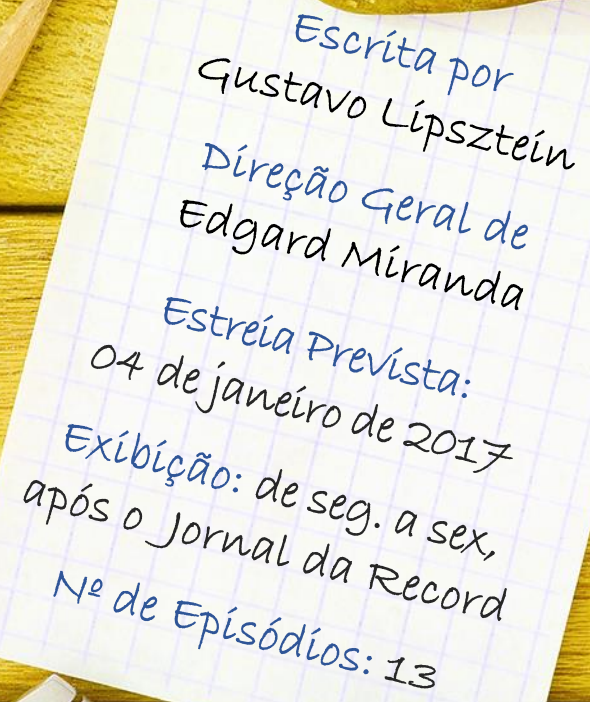 Escrita por
Gustavo Lipsztein
Direção Geral de
Edgard Miranda
Estreia Prevista:
04 de janeiro de 2017
Exibição: de seg. a sex,
após o Jornal da Record
Nº de Episódios: 13